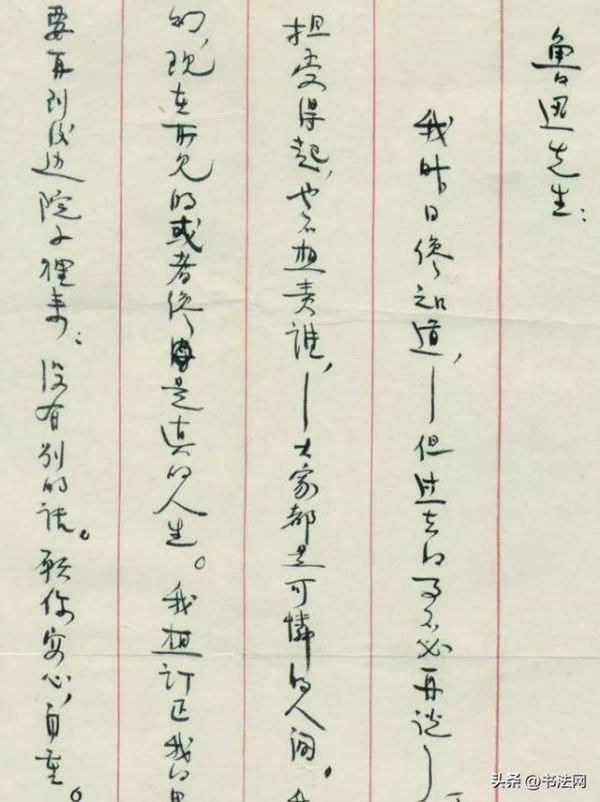 魯迅先生：
我昨日纔知道，—但过去的事不必再说—
担受得起，也不想责谁，—大家都是可憐的人间。我
幻，现在所见的或者纔是真的人生。我想订正我的
要再到後边院子裡来，没有别的话。願你安心，自重。
头条 @书法网